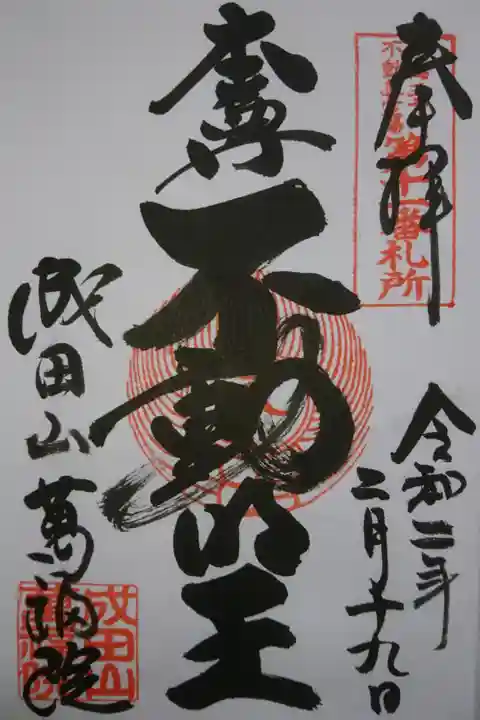 奉拝
第十一番札所
令和二年
二月十九日
本尊
不動明王
成田山萬福院
成田山